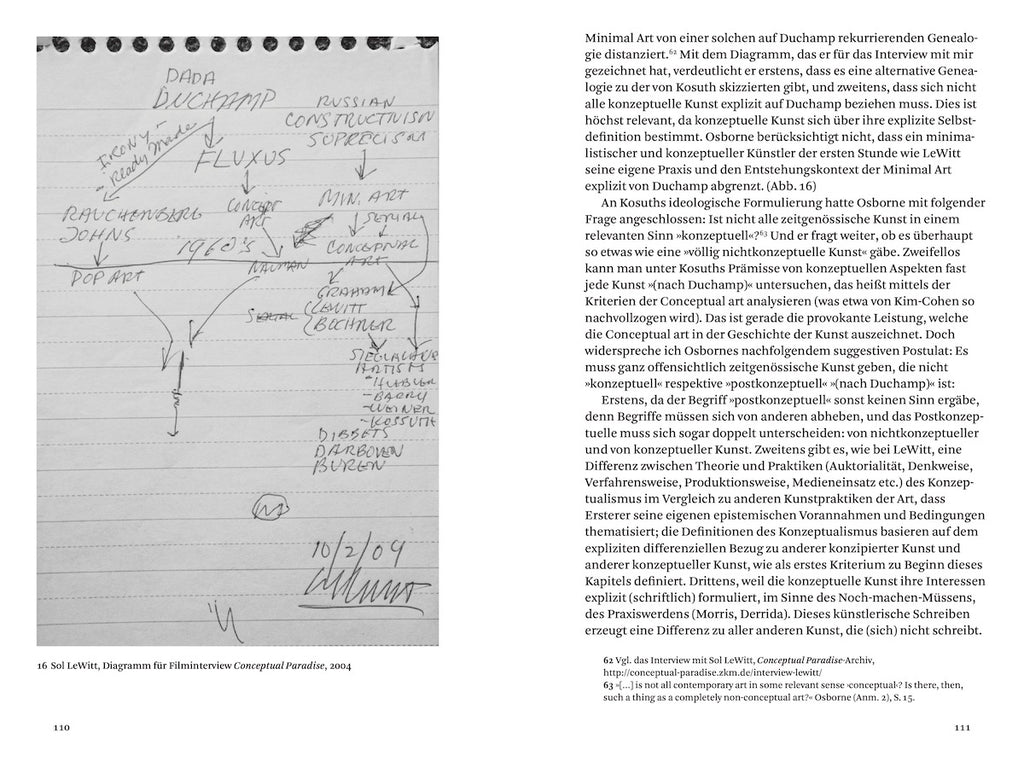 DADA
DUCHAMP
RUSSIAN
CONSTRUCTIVISM
SUPRECISM
IRONY -
- Ready Made
FLUXUS
RAUCHENBERG
JOHNS
CONCEPT
ART
MIN. ART
SERIAL
1960'S
CONCEPTUAL
ART
POP ART
NAUMAN
GRAHAM
LEWITT
BOCHNER
SERIAL
SIEGLAUB
ARTISTS
- HUEBLER
- BARRY
- WEINER
- KOSSUTH
DIBBETS
DARBOVEN
BUREN
10/2/04
16 Sol LeWitt, Diagramm für Filminterview Conceptual Paradise, 2004
110
Minimal Art von einer solchen auf Duchamp rekurrierenden Genealo-
gie distanziert.62 Mit dem Diagramm, das er für das Interview mit mir
gezeichnet hat, verdeutlicht er erstens, dass es eine alternative Genea-
logie zu der von Kosuth skizzierten gibt, und zweitens, dass sich nicht
alle konzeptuelle Kunst explizit auf Duchamp beziehen muss. Dies ist
höchst relevant, da konzeptuelle Kunst sich über ihre explizite Selbst-
definition bestimmt. Osborne berücksichtigt nicht, dass ein minima-
listischer und konzeptueller Künstler der ersten Stunde wie LeWitt
seine eigene Praxis und den Entstehungskontext der Minimal Art
explizit von Duchamp abgrenzt. (Abb. 16)
An Kosuths ideologische Formulierung hatte Osborne mit folgender
Frage angeschlossen: Ist nicht alle zeitgenössische Kunst in einem
relevanten Sinn »konzeptuell«?63 Und er fragt weiter, ob es überhaupt
so etwas wie eine »völlig nichtkonzeptuelle Kunst« gäbe. Zweifellos
kann man unter Kosuths Prämisse von konzeptuellen Aspekten fast
jede Kunst »(nach Duchamp)« untersuchen, das heißt mittels der
Kriterien der Conceptual art analysieren (was etwa von Kim-Cohen so
nachvollzogen wird). Das ist gerade die provokante Leistung, welche
die Conceptual art in der Geschichte der Kunst auszeichnet. Doch
widerspreche ich Osbornes nachfolgendem suggestiven Postulat: Es
muss ganz offensichtlich zeitgenössische Kunst geben, die nicht
»konzeptuell« respektive »postkonzeptuell« »(nach Duchamp)« ist:
Erstens, da der Begriff »postkonzeptuell« sonst keinen Sinn ergäbe,
denn Begriffe müssen sich von anderen abheben, und das Postkonzep-
tuelle muss sich sogar doppelt unterscheiden: von nichtkonzeptueller
und von konzeptueller Kunst. Zweitens gibt es, wie bei LeWitt, eine
Differenz zwischen Theorie und Praktiken (Auktorialität, Denkweise,
Verfahrensweise, Produktionsweise, Medieneinsatz etc.) des Konzep-
tualismus im Vergleich zu anderen Kunstpraktiken der Art, dass
Ersterer seine eigenen epistemischen Vorannahmen und Bedingungen
thematisiert; die Definitionen des Konzeptualismus basieren auf dem
expliziten differenziellen Bezug zu anderer konzipierter Kunst und
anderer konzeptueller Kunst, wie als erstes Kriterium zu Beginn dieses
Kapitels definiert. Drittens, weil die konzeptuelle Kunst ihre Interessen
explizit (schriftlich) formuliert, im Sinne des Noch-machen-Müssens,
des Praxiswerdens (Morris, Derrida). Dieses künstlerische Schreiben
erzeugt eine Differenz zu aller anderen Kunst, die (sich) nicht schreibt.
62 Vgl. das Interview mit Sol LeWitt, Conceptual Paradise-Archiv,
http://conceptual-paradise.zkm.de/interview-lewitt/
63 »[…] is not all contemporary art in some relevant sense ›conceptual‹? Is there, then,
such a thing as a completely non-conceptual art?« Osborne (Anm. 2), S. 15.
111